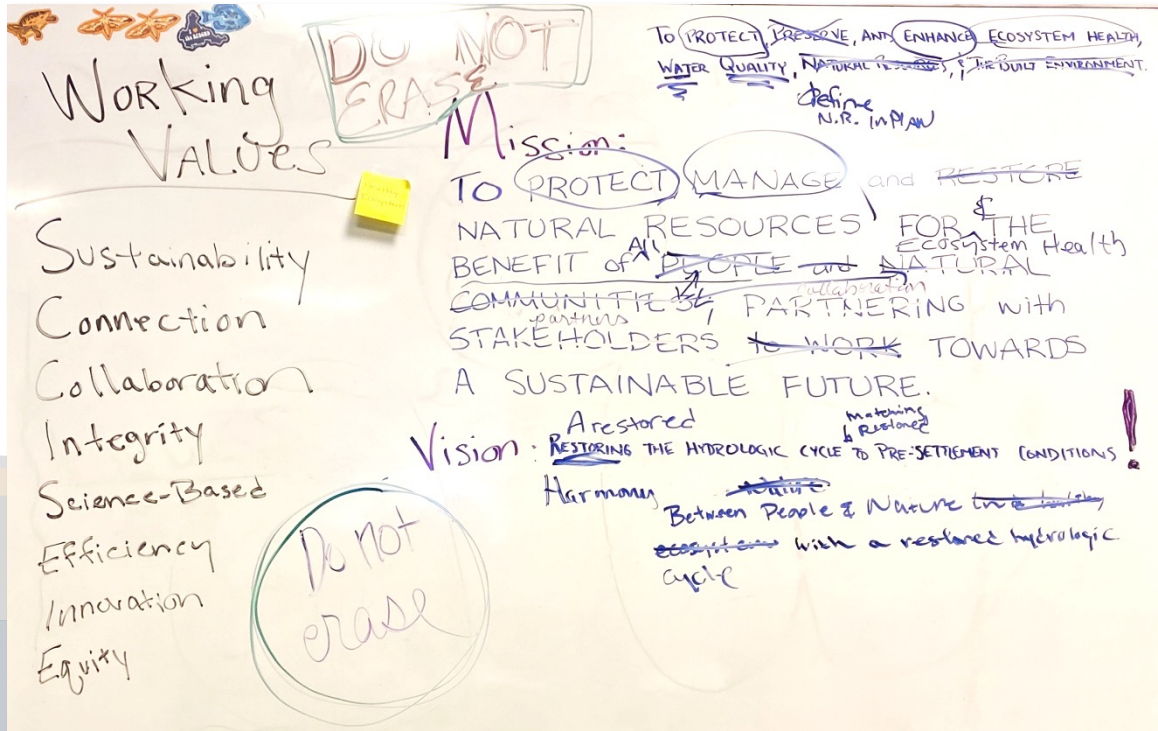 Working
Values
Sustainability
Connection
Collaboration
Integrity
Science-Based
Efficiency
Innovation
Equity
DO NOT
ERASE
Do not
erase
TO PROTECT, PRESERVE, AND ENHANCE ECOSYSTEM HEALTH,
WATER QUALITY, NATURAL RESOURCES, & THE BUILT ENVIRONMENT.
define
N.R. in PLAN
Mission:
TO PROTECT, MANAGE, and RESTORE
NATURAL RESOURCES FOR & THE
Ecosystem Health
BENEFIT of All PEOPLE and NATURAL
collaboration
COMMUNITIES, PARTNERING with
partners
STAKEHOLDERS to WORK TOWARDS
A SUSTAINABLE FUTURE.
A restored
matching
Restored
Vision: RESTORING THE HYDROLOGIC CYCLE TO PRE-SETTLEMENT CONDITIONS !
Harmony
Between People & Nature in a
ecosystem with a restored hydrologic
cycle